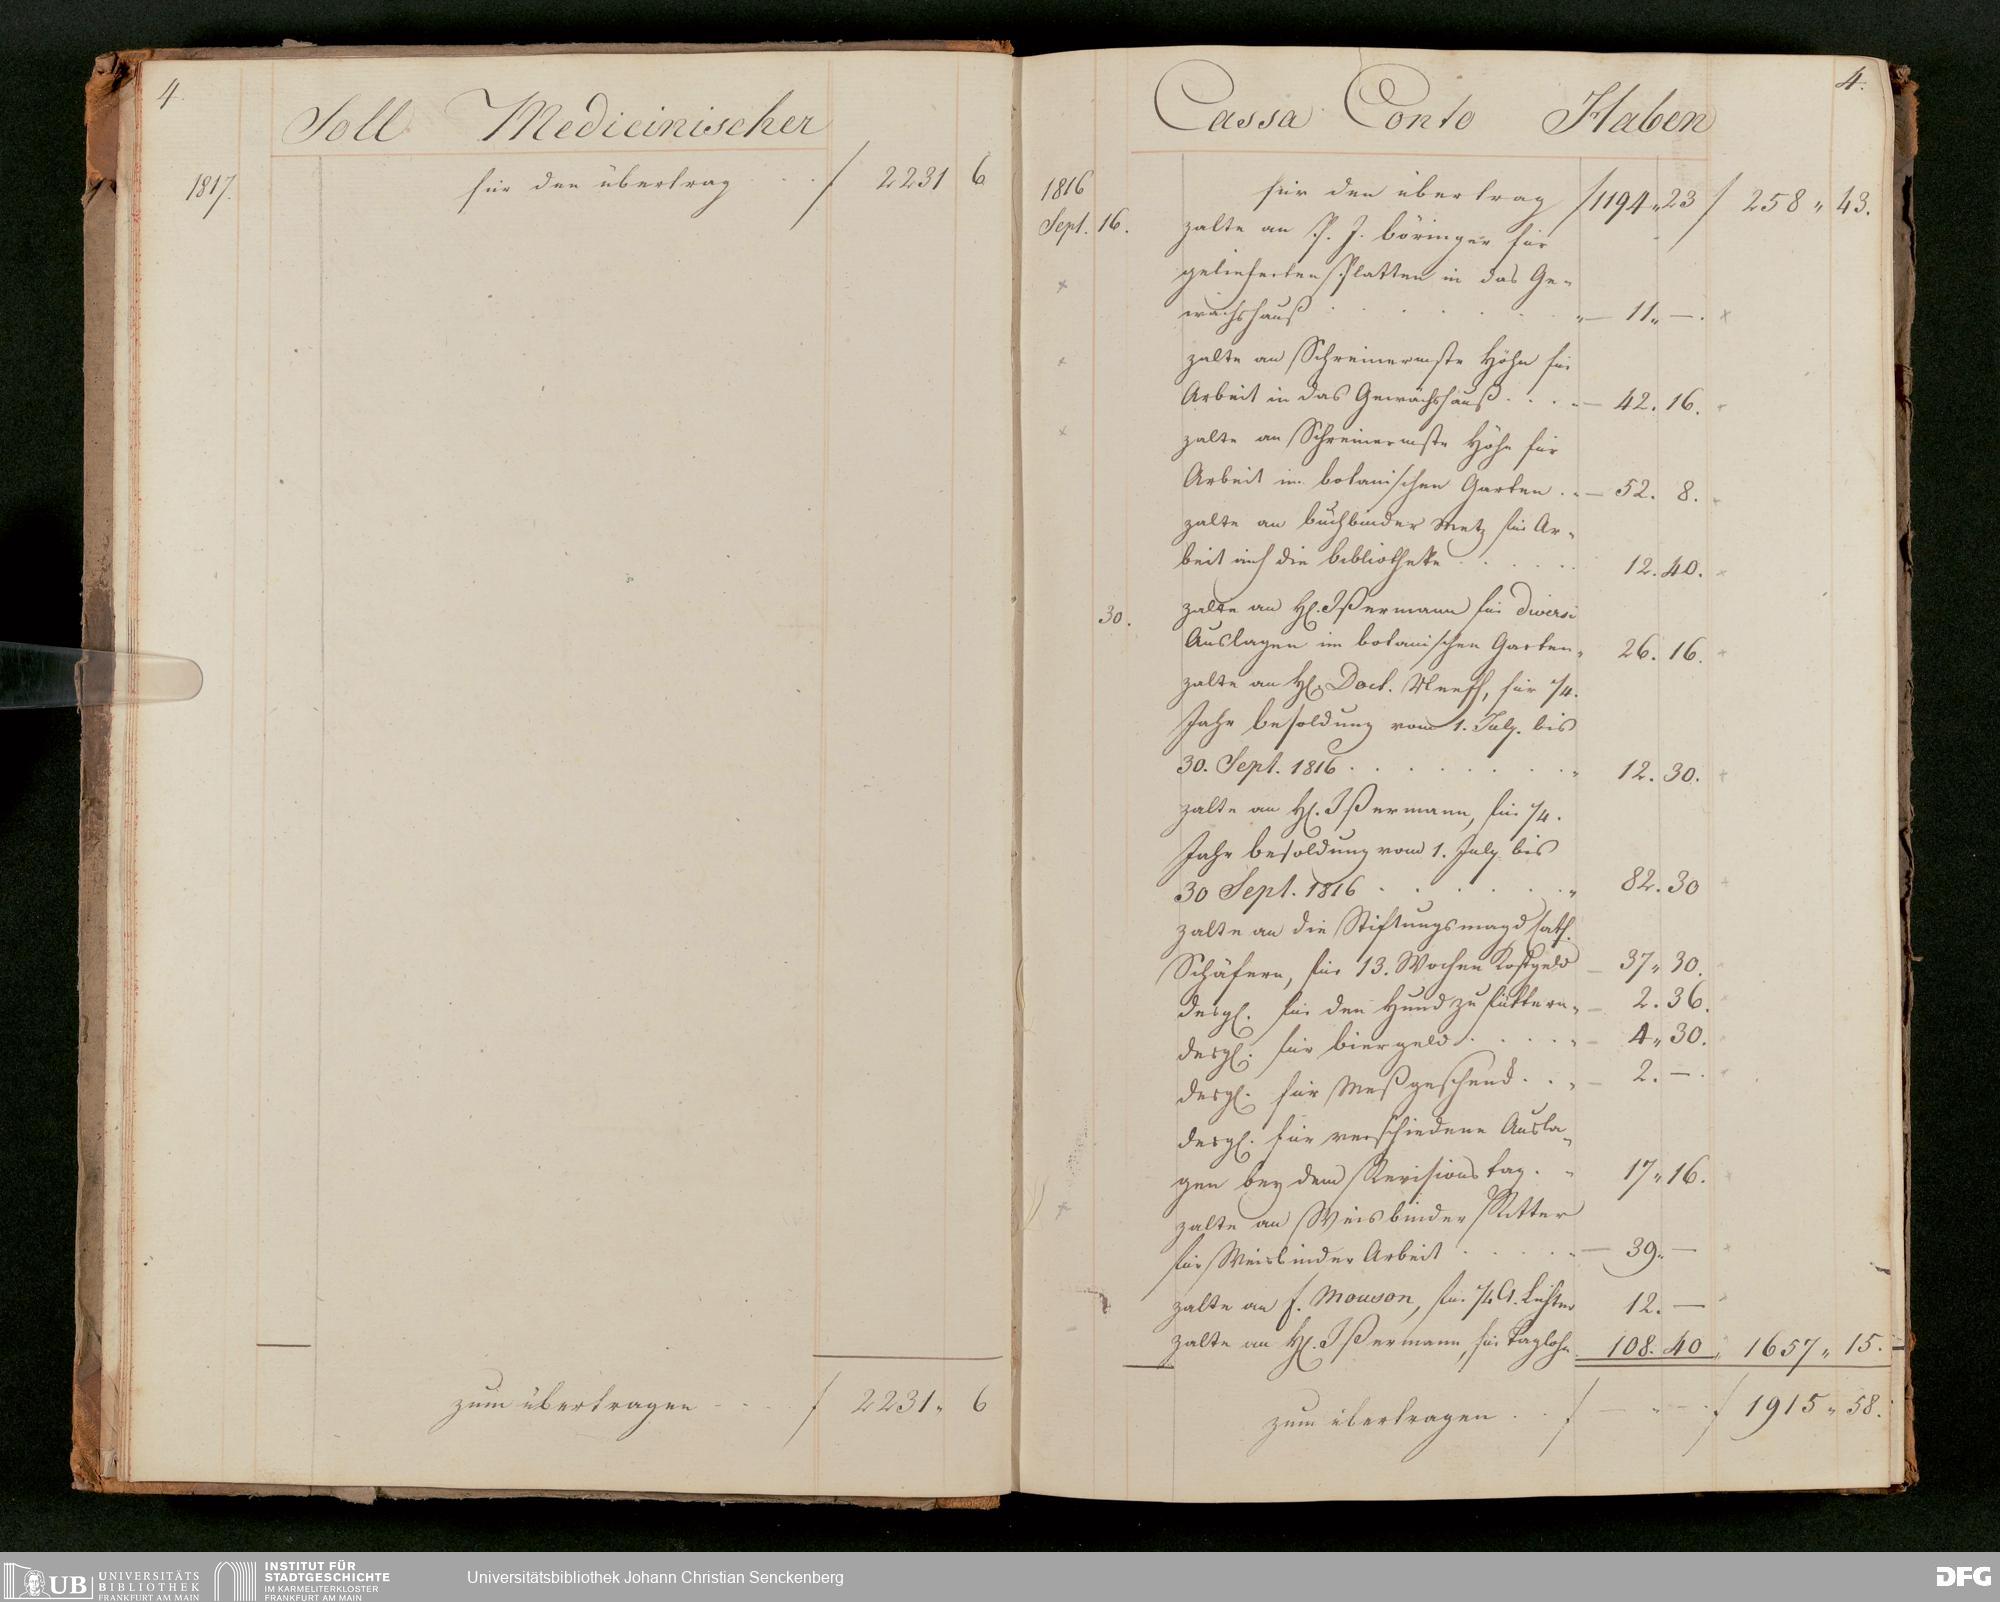 4.
Soll Medicinischer
1817. für den übertrag . . . f 2231 6
zum übertragen . . . . f 2231„ 6
4.
Cassa Conto Haben
1816 für den übertrag f 1194„23 f 258„43.
Sept. 16. zalte an P. J. böringer für
gelieferten Platten in das Ge-
wächshauß . . . . . „— 11„—.
zalte an Schreinermstr Höhn für
Arbeit in das Gewächshauß . . . „— 42. 16.
zalte an Schreinermstr Höhn für
Arbeit im botanischen Garten . „— 52. 8.
zalte an buchbinder Metz für Ar-
beit auf die bibliotheke . . . . . 12. 40.
30. zalte an H. Ißermann für diverse
Auslagen im botanischen Garten „ 26. 16.
zalte an H. Doct. Neeff, für 1/4.
Jahr besoldung vom 1. July. bis
30. Sept. 1816 . . . . . . . . „ 12. 30.
zalte an H. Ißermann, für 1/4.
Jahr besoldung vom 1. July. bis
30 Sept. 1816 . . . . . . „ 82. 30
zalte an die Stiftungsmagd Cath.
Schäfern, für 13. Wochen Kostgeld — 37„ 30.
desgl. für den Hund zu füttern „— 2. 36.
desgl. für biergeld . . . . „— 4„ 30.
desgl. für Meßgeschenk . . „— 2. —.
desgl. für verschiedene Ausla-
gen bey dem Revisions tag . „ 17„ 16.
zalte an Weisbinder Ritter
für Weisbinder Arbeit . . . . „— 39. —
zalte an f. Mouson, für 1/4 Ct. Lichter 12. —
zalte an H. Ißermann, für Taglohn 108. 40 „ 1657„ 15.
zum übertragen . . f — „ — . f 1915„ 58.
UB
UNIVERSITÄTS
BIBLIOTHEK
FRANKFURT AM MAIN
INSTITUT FÜR
STADTGESCHICHTE
IM KARMELITERKLOSTER
FRANKFURT AM MAIN
Universitätsbibliothek Johann Christian Senckenberg
DFG